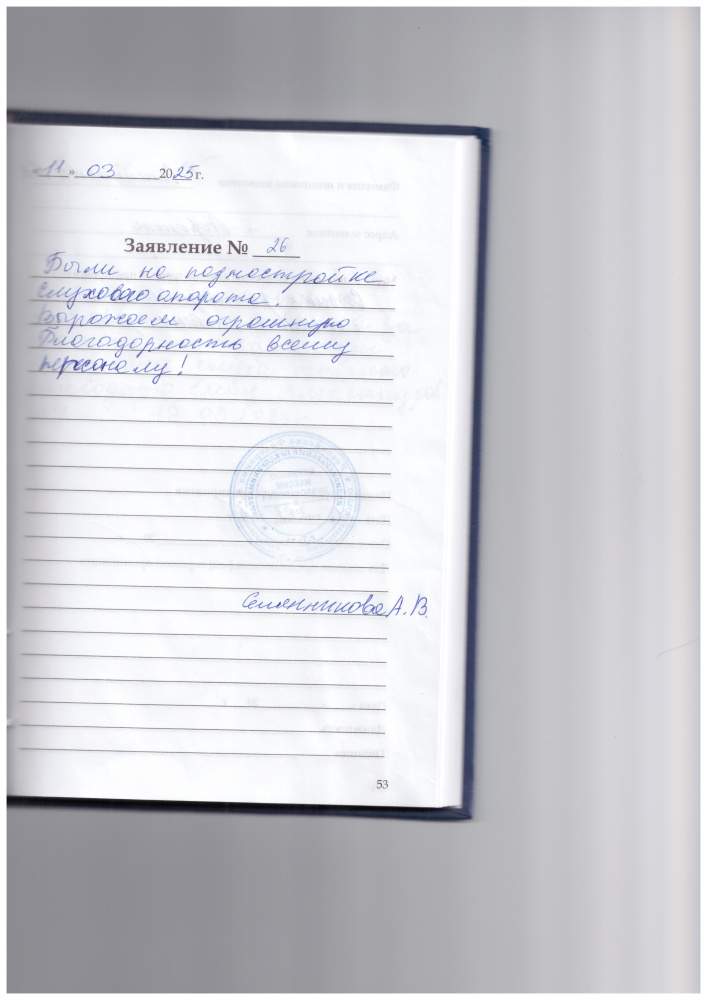 «11» 03 2025 г.
Заявление № 26
Были на поднастройке
слухового апарата.
Выражаем огромную
Благодарность всему
персоналу!
Семенникова А.В.
53